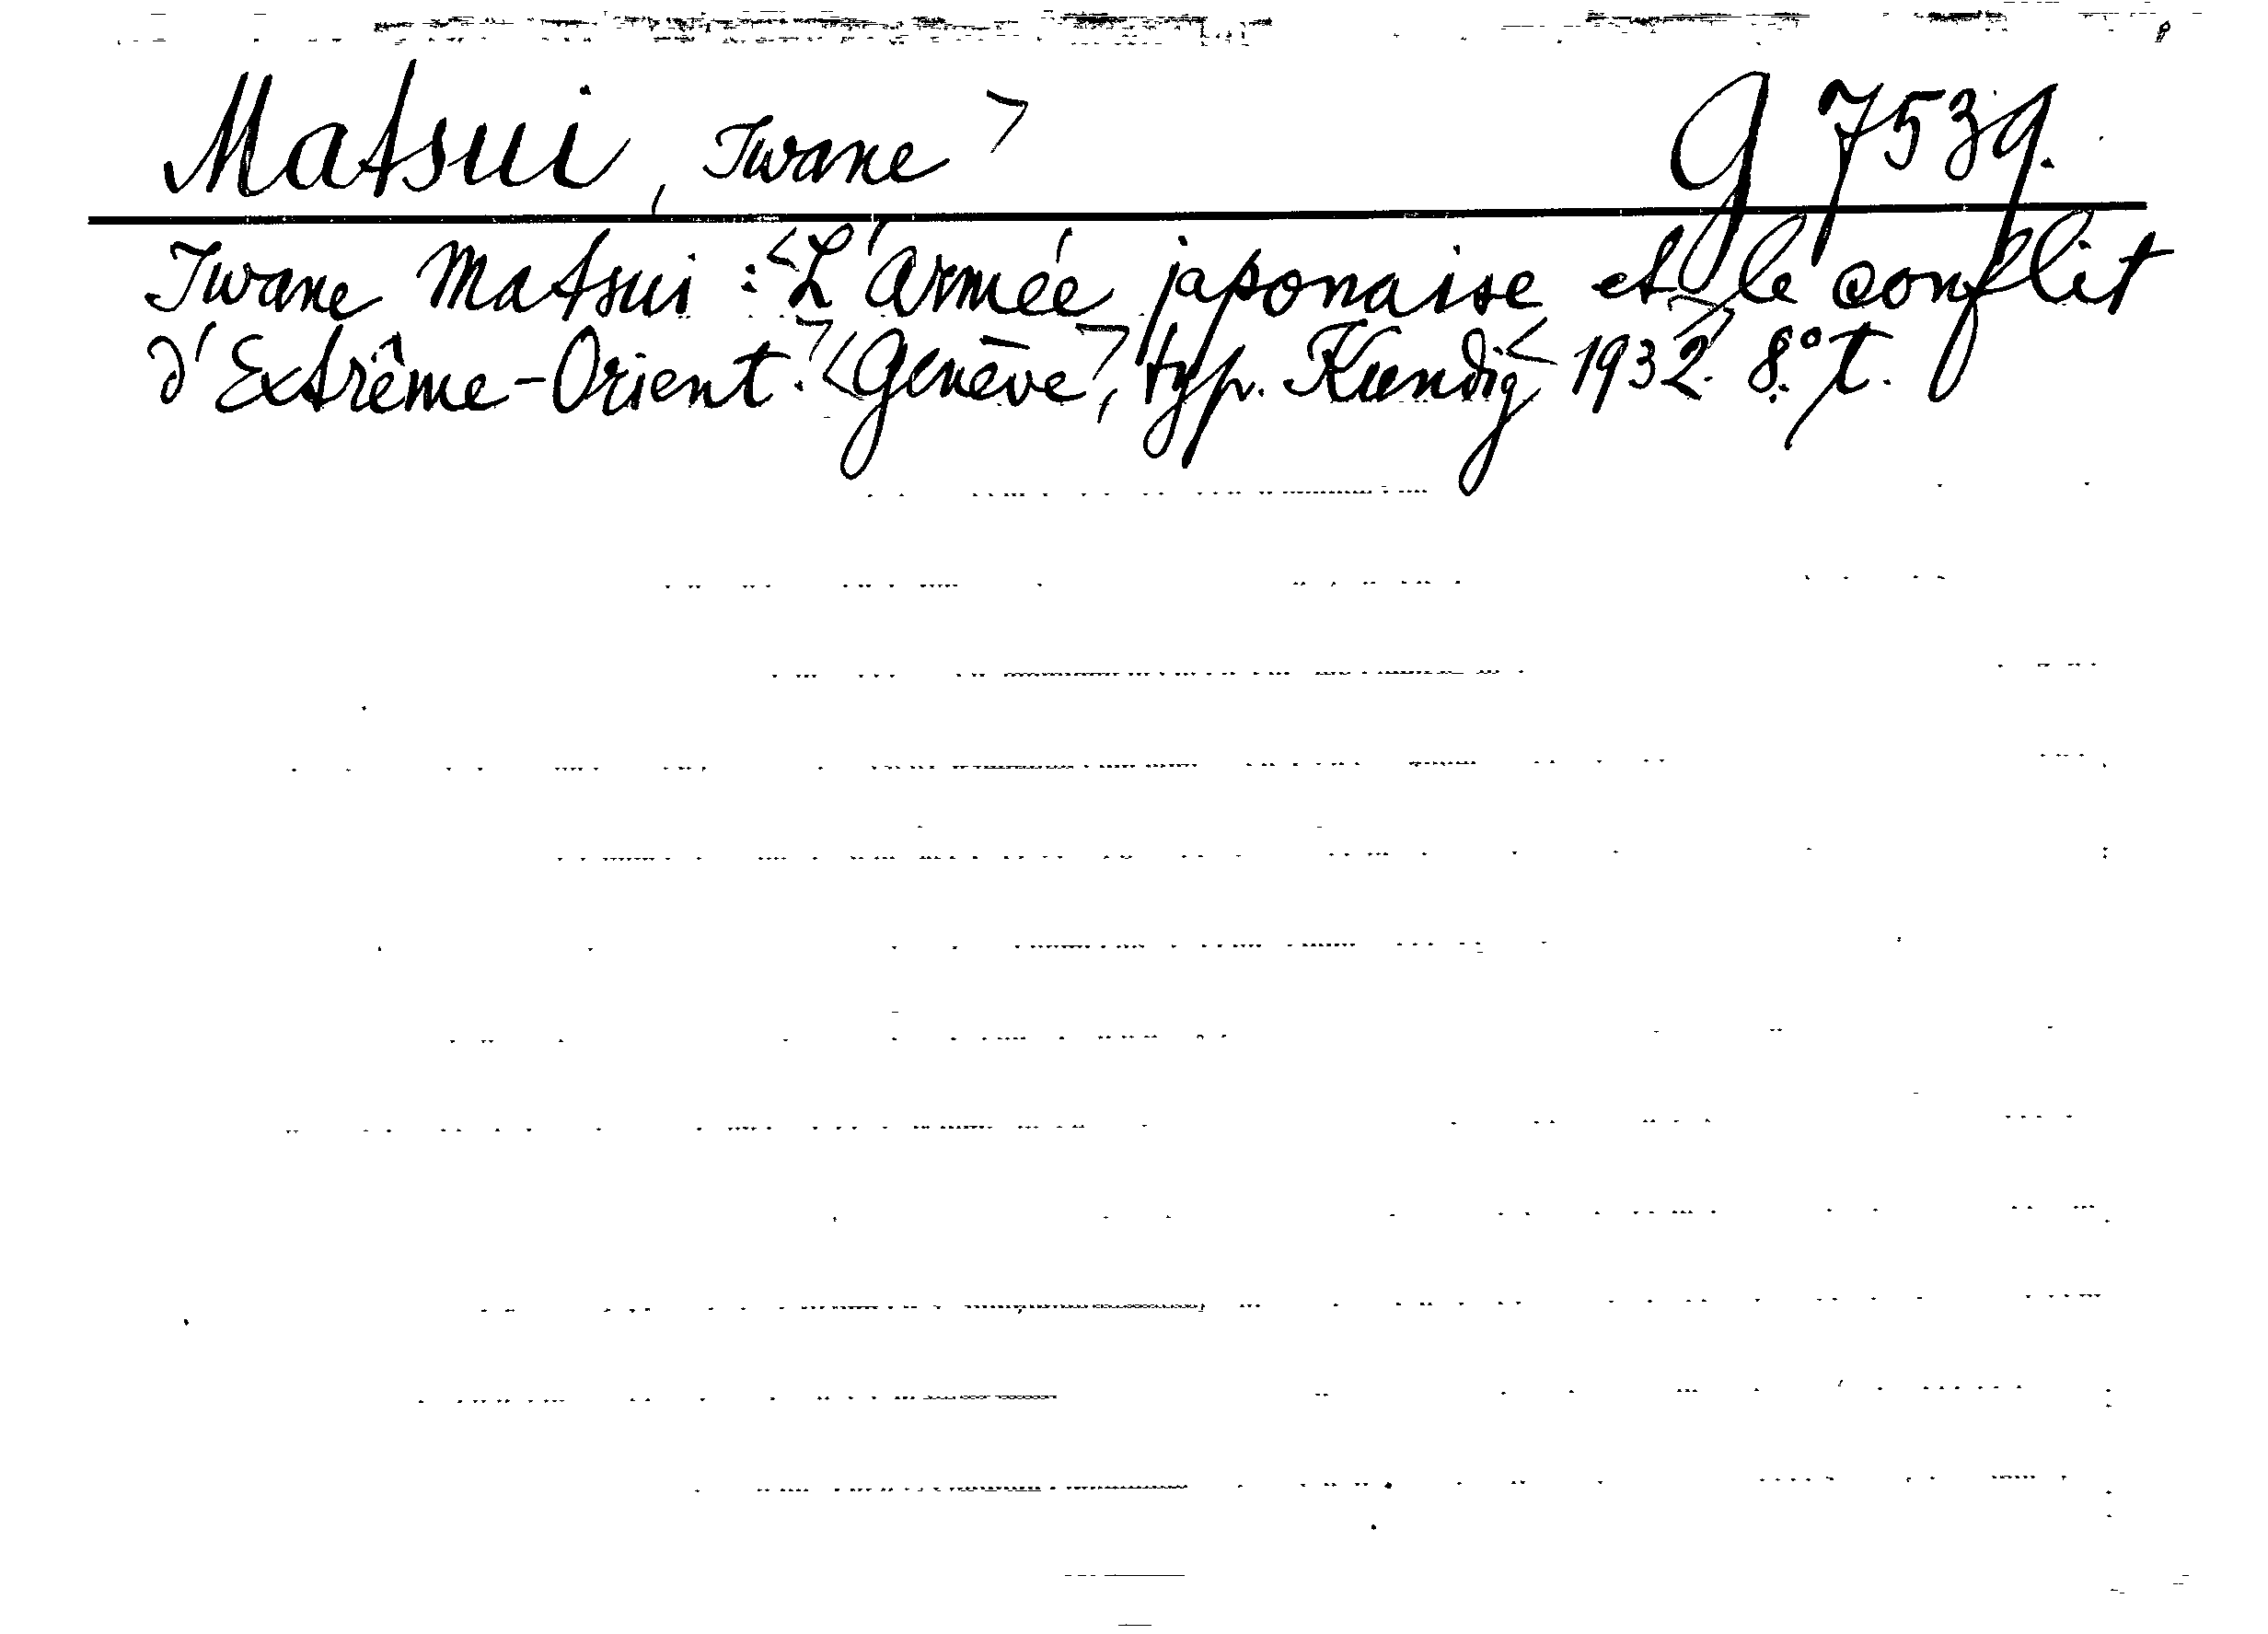 Matsui, Iwane> G 7539.
Iwane Matsui: <L'armée japonaise et le conflit
d'Extrême-Orient.> <Genève>, typ. Kundig< 1932>. 8.° T.